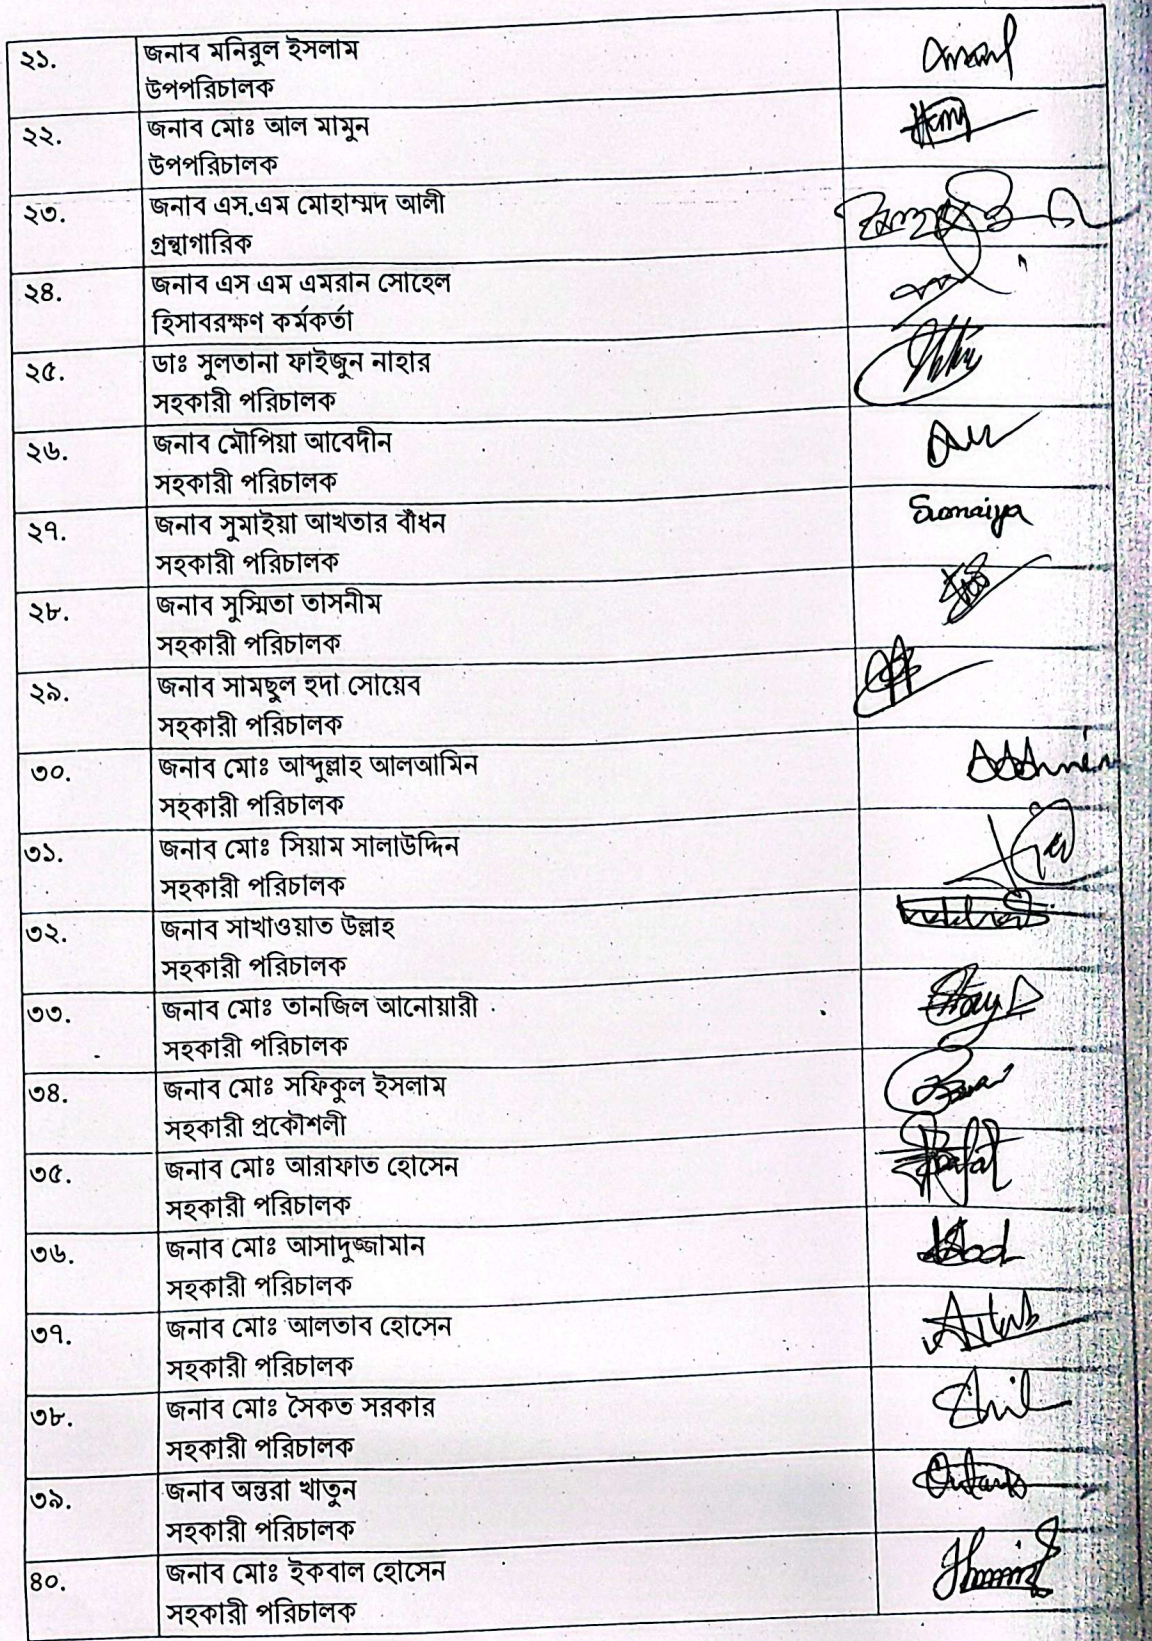 ২১.
জনাব মনিরুল ইসলাম
উপপরিচালক
২২.
জনাব মোঃ আল মামুন
উপপরিচালক
২৩.
জনাব এস.এম মোহাম্মদ আলী
গ্রন্থাগারিক
২৪.
জনাব এস এম এমরান সোহেল
হিসাবরক্ষণ কর্মকর্তা
২৫.
ডাঃ সুলতানা ফাইজুন নাহার
সহকারী পরিচালক
২৬.
জনাব মৌপিয়া আবেদীন
সহকারী পরিচালক
২৭.
জনাব সুমাইয়া আখতার বাঁধন
সহকারী পরিচালক
Sumaiya
২৮.
জনাব সুস্মিতা তাসনীম
সহকারী পরিচালক
২৯.
জনাব সামছুল হুদা সোয়েব
সহকারী পরিচালক
৩০.
জনাব মোঃ আব্দুল্লাহ আলআমিন
সহকারী পরিচালক
৩১.
জনাব মোঃ সিয়াম সালাউদ্দিন
সহকারী পরিচালক
৩২.
জনাব সাখাওয়াত উল্লাহ
সহকারী পরিচালক
৩৩.
জনাব মোঃ তানজিল আনোয়ারী
সহকারী পরিচালক
৩৪.
জনাব মোঃ সফিকুল ইসলাম
সহকারী প্রকৌশলী
৩৫.
জনাব মোঃ আরাফাত হোসেন
সহকারী পরিচালক
৩৬.
জনাব মোঃ আসাদুজ্জামান
সহকারী পরিচালক
৩৭.
জনাব মোঃ আলতাব হোসেন
সহকারী পরিচালক
৩৮.
জনাব মোঃ সৈকত সরকার
সহকারী পরিচালক
৩৯.
জনাব অন্তরা খাতুন
সহকারী পরিচালক
৪০.
জনাব মোঃ ইকবাল হোসেন
সহকারী পরিচালক